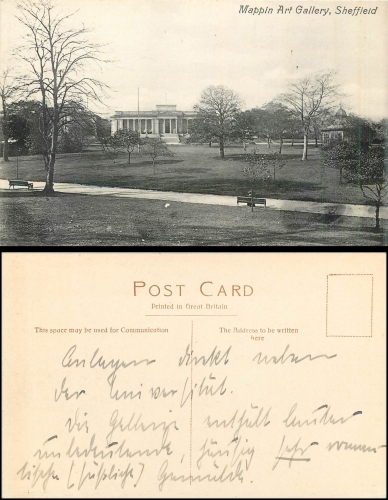 Mappin Art Gallery, Sheffield
POST CARD
Printed in Great Britain
This space may be used for Communication
The Address to be written
here
Anlagen direkt neben
der Universität.
Die Gallerie enthält lauter
unbedeutende, sehr roman
tische (süßliche) Gemälde.